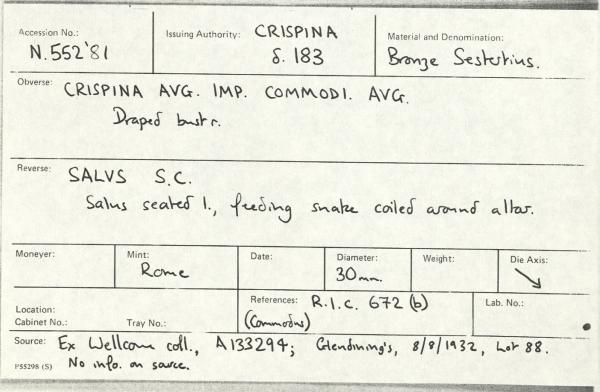 Accession No.: Issuing Authority: CRISPINA Material and Denomination:
N.552'81 δ. 183 Bronze Sestertius.
Obverse: CRISPINA AVG. IMP. COMMODI. AVG.
Draped bust r.
Reverse: SALVS S.C.
Salus seated l., feeding snake coiled around altar.
Moneyer: Mint: Date: Diameter: Weight: Die Axis:
Rome 30mm.
Location: References: R.I.C. 672 (b) Lab. No.:
Cabinet No.: Tray No.: (Commodus)
Source: Ex Wellcome coll., A133294; Glendining's, 8/8/1932, Lot 88.
P55298 (S) No info. on source.